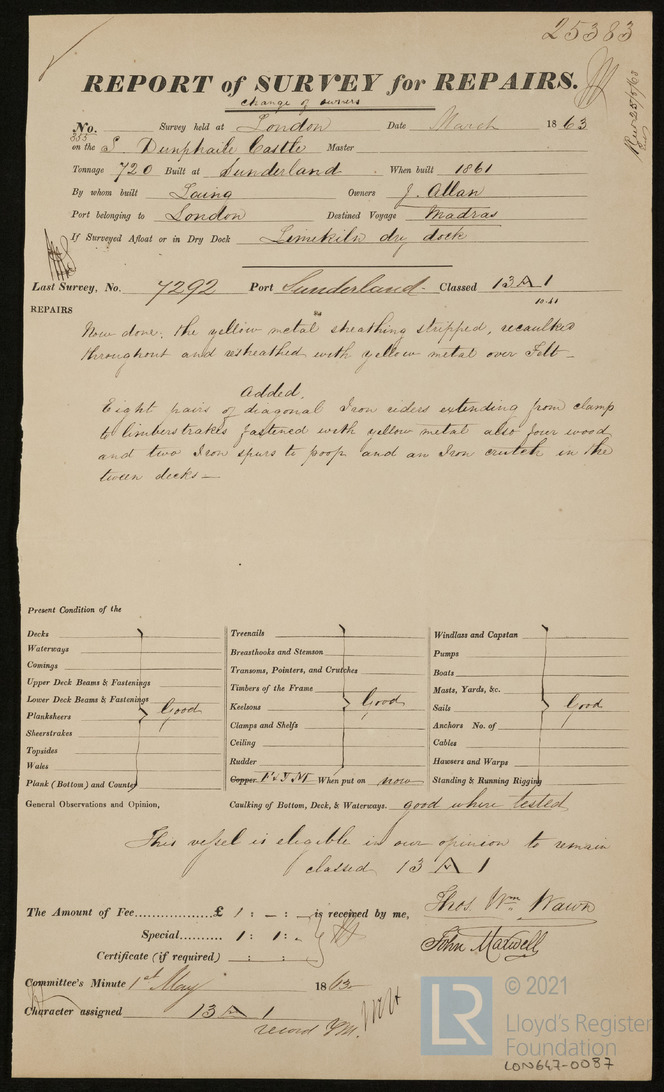 25383
REPORT of SURVEY for REPAIRS.
change of owners
No. 353 Survey held at London Date March 1863
on the S. Dunphaile Castle Master
Tonnage 720 Built at Sunderland When built 1861
By whom built Laing Owners J. Allan
Port belonging to London Destined Voyage Madras
If Surveyed Afloat or in Dry Dock Limekiln dry dock
Last Survey, No. 7292 Port Sunderland Classed 13 A 1
REPAIRS
Now done. the yellow metal sheathing stripped, recaulked
throughout and resheathed with yellow metal over Felt
Added.
Eight pairs of diagonal Iron riders extending from clamp
to limberstrakes fastened with yellow metal also four wood
and two Iron spurs to poop and an Iron crutch in the
tween decks
Present Condition of the
Decks
Waterways
Comings
Upper Deck Beams & Fastenings
Lower Deck Beams & Fastenings
Planksheers
Sheerstrakes
Topsides
Wales
Plank (Bottom) and Counter
Good
Treenails
Breasthooks and Stemson
Transoms, Pointers, and Crutches
Timbers of the Frame
Keelsons
Clamps and Shelfs
Ceiling
Rudder
Good
Copper F & Y M When put on now
Windlass and Capstan
Pumps
Boats
Masts, Yards, &c.
Sails
Anchors No. of
Cables
Hawsers and Warps
Standing & Running Rigging
Good
General Observations and Opinion, Caulking of Bottom, Deck, & Waterways. good where tested
This vessel is eligible in our opinion to remain
classed 13 A 1
The Amount of Fee £ 1 : – : – is received by me,
Special 1 : 1 : -
Certificate (if required) : :
Thos. Wm Wawn
John Maxwell
Committee's Minute 1st May 1863
Character assigned 13 A 1
record YM.
© 2021
LR Lloyd's Register
Foundation
LON647-0087